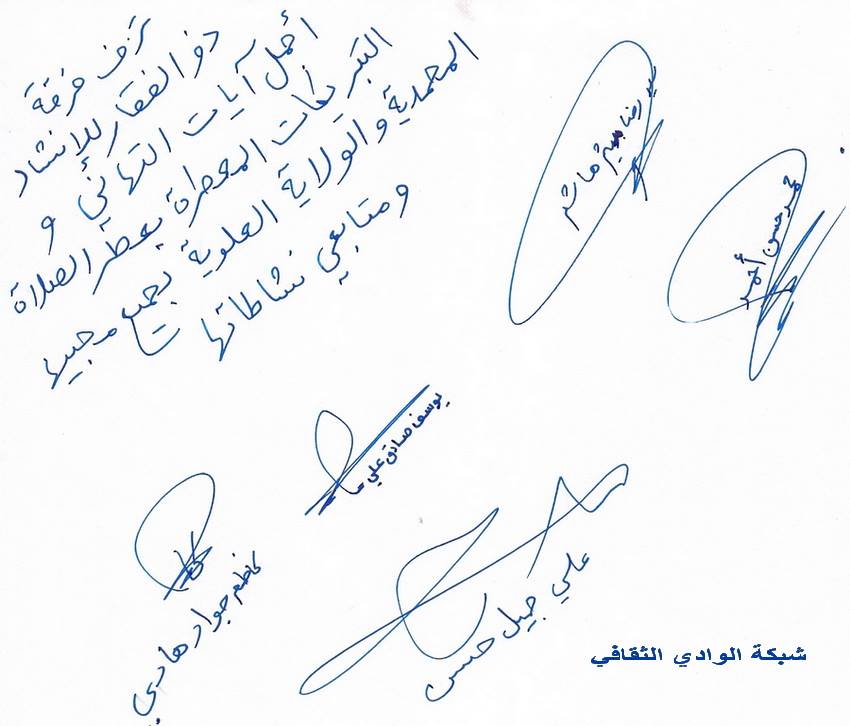 تزف فرقة
ذو الفقار للإنشاد
أجمل آيات التهاني و
التبريكات المعطرة بعطر الصلاة
المحمدية والولاية العلوية بجميع محبيها
ومتابعي نشاطاتها
رضا بشير هاشم
محمد حسن أحمد
يوسف صادق علي
كاظم جواد هادي
علي جميل حسن
شبكة الوادي الثقافي